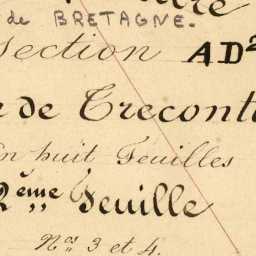 de BRETAGNE.
Section AD²
de Trecont
en huit Feuilles
2ème Feuille
Nos 3 et 4.